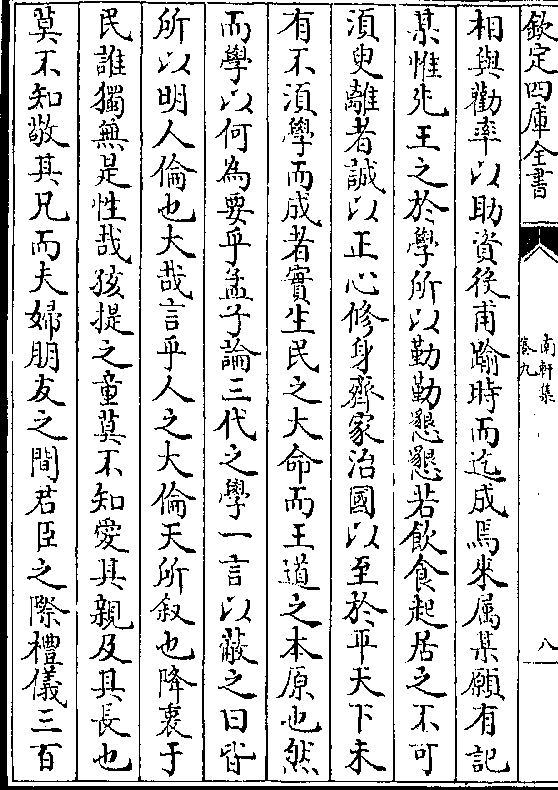 欽定四庫全書
南軒集
卷九
八
相與勸率以助資役甫踰時而迄成焉來属某願有記
某惟先王之於學所以勤勤懇懇若飲食起居之不可
須臾離者誠以正心修身齊家治國以至於平天下未
有不須學而成者實生民之大命而王道之本原也然
而學以何為要乎孟子論三代之學一言以蔽之曰皆
所以明人倫也大哉言乎人之大倫天所叙也降衷于
民誰獨無是性哉孩提之童莫不知愛其親及其長也
莫不知敬其兄而夫婦朋友之間君臣之際禮儀三百